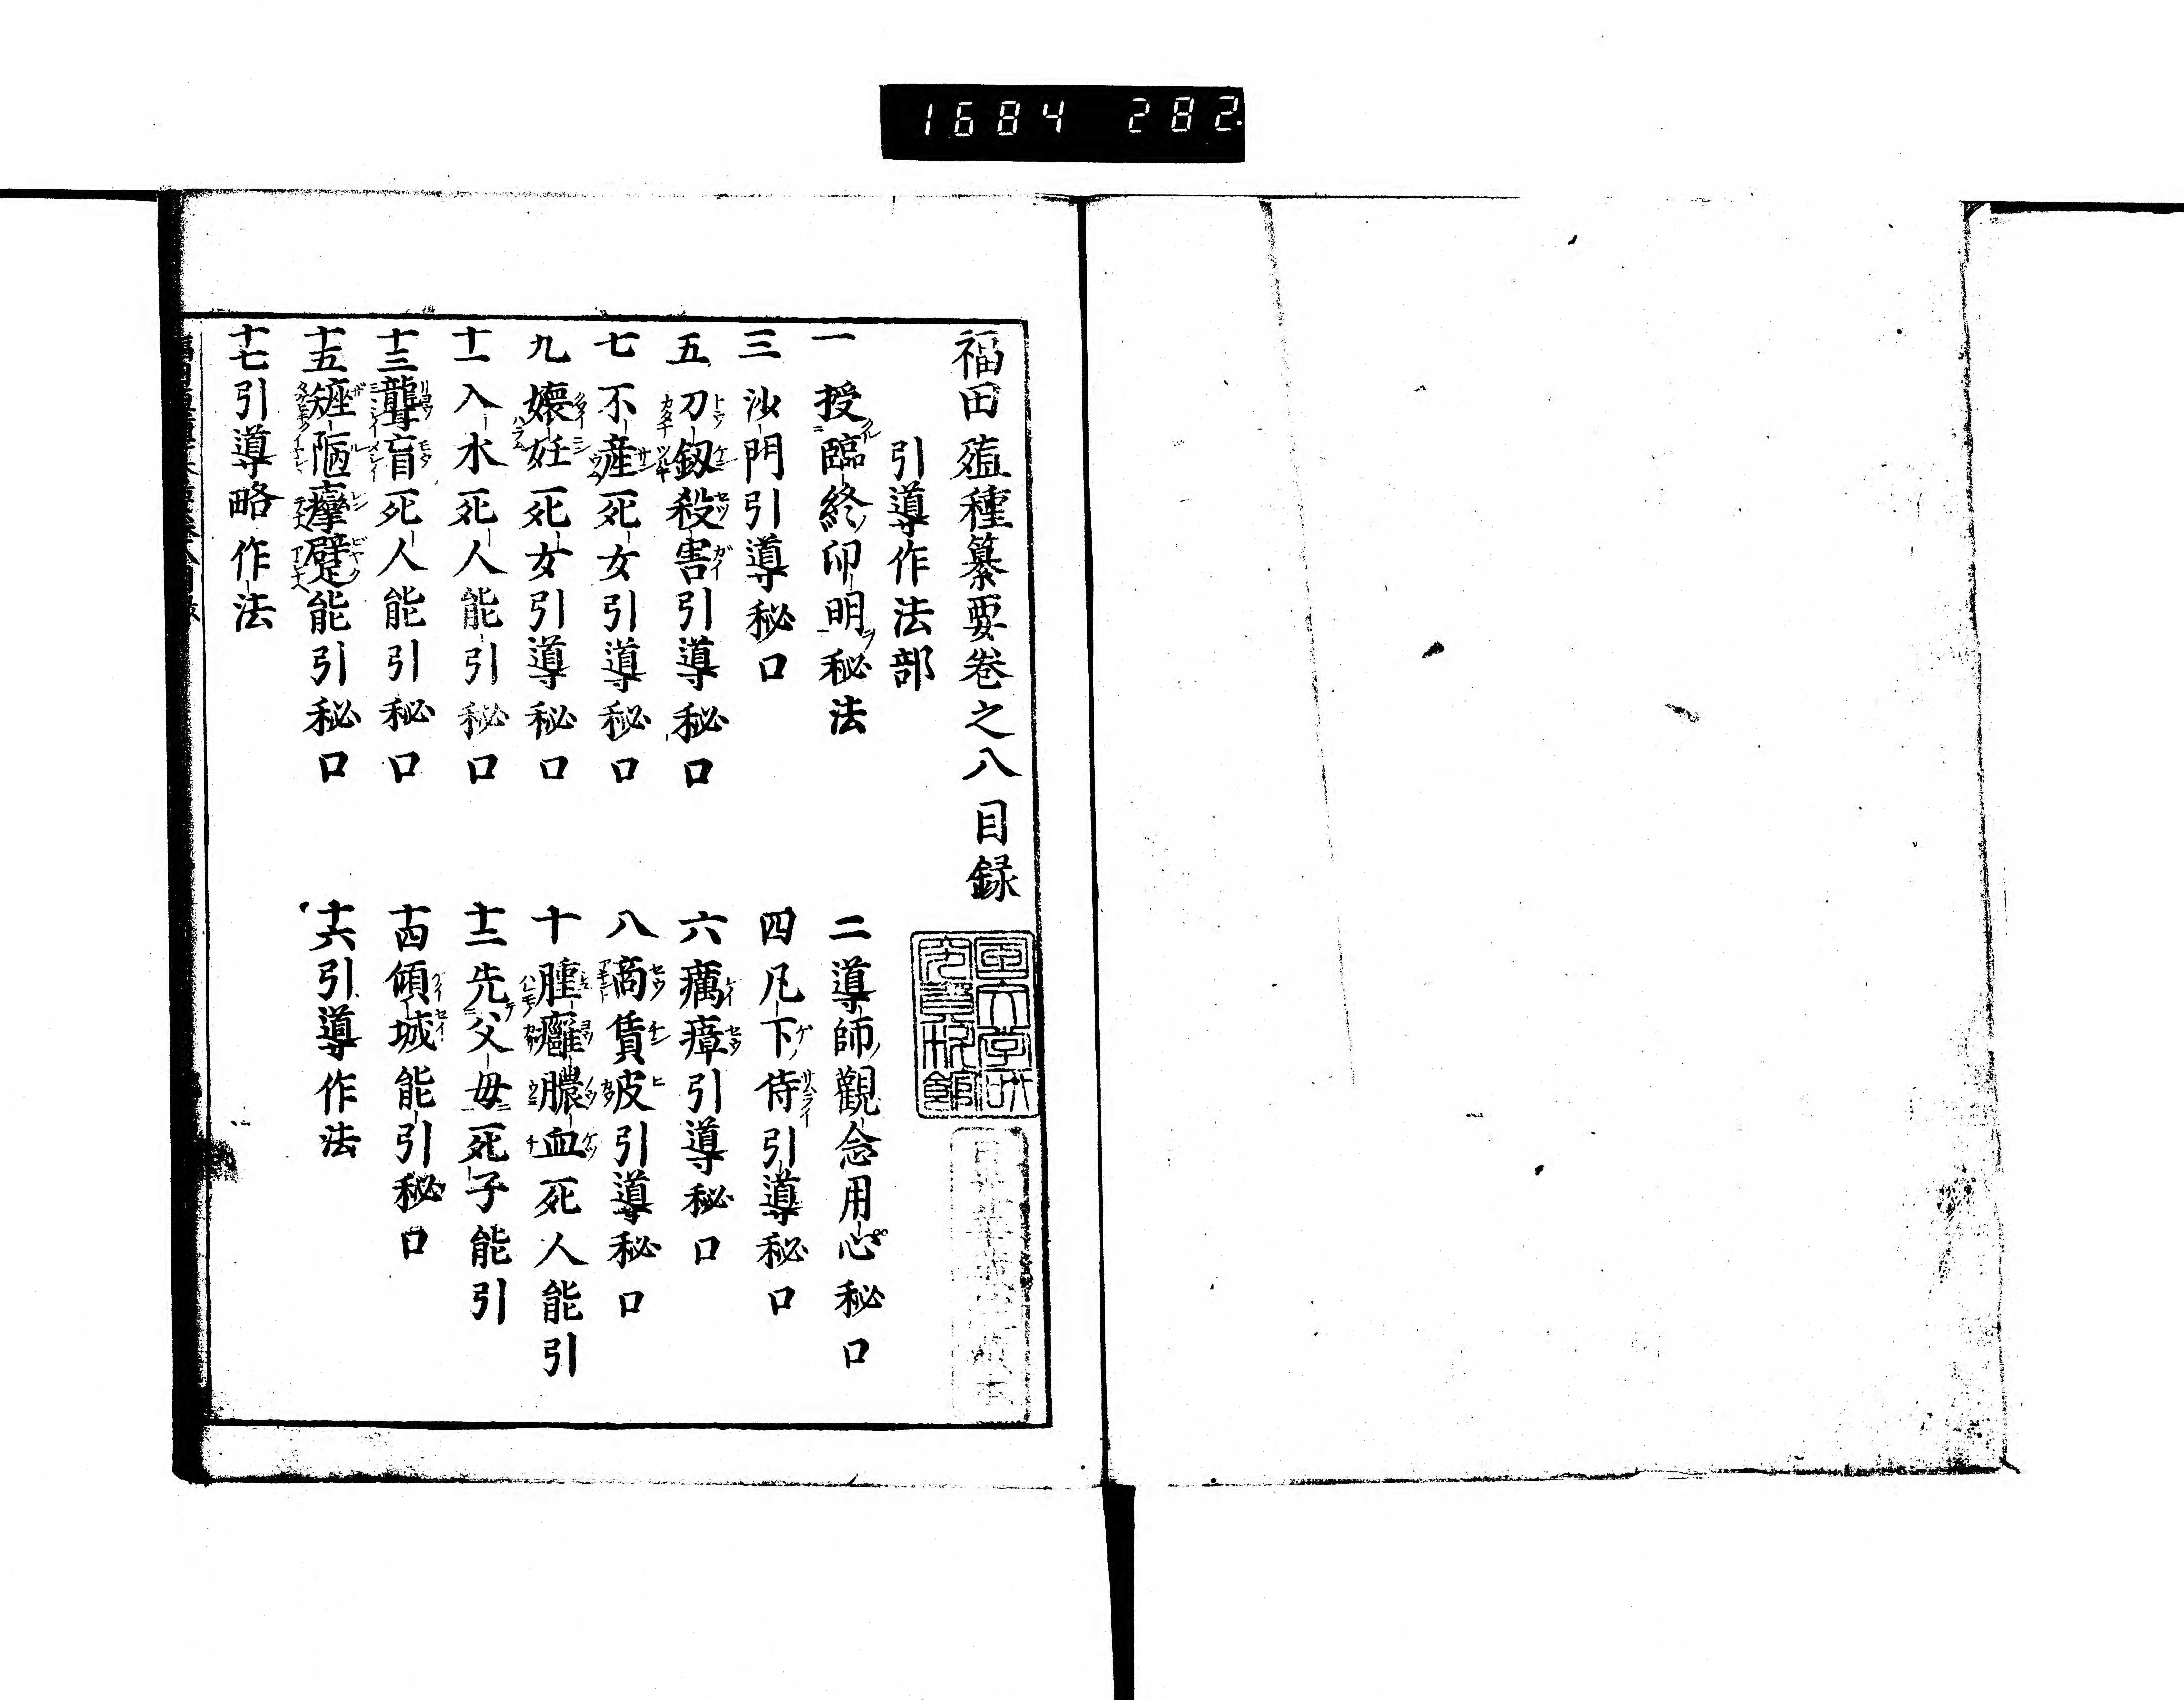 1684 282
福田殖種纂要巻之八目録
引導作法部
一 授臨終印明秘法
二 導師觀念用心秘口
三 沙門引導秘口
四 凡下侍引導秘口
五 刀釼殺害引導秘口
六 癘瘴引導秘口
七 不産死女引導秘口
八 商賃皮引導秘口
九 懐妊死女引導秘口
十 腫癰膿血死人能引
十一 入水死人能引秘口
十二 先父母死子能引
十三 聾盲死人能引秘口
十四 傾城能引秘口
十五 矬陋攣躄能引秘口
十六 引導作法
十七 引導略作法